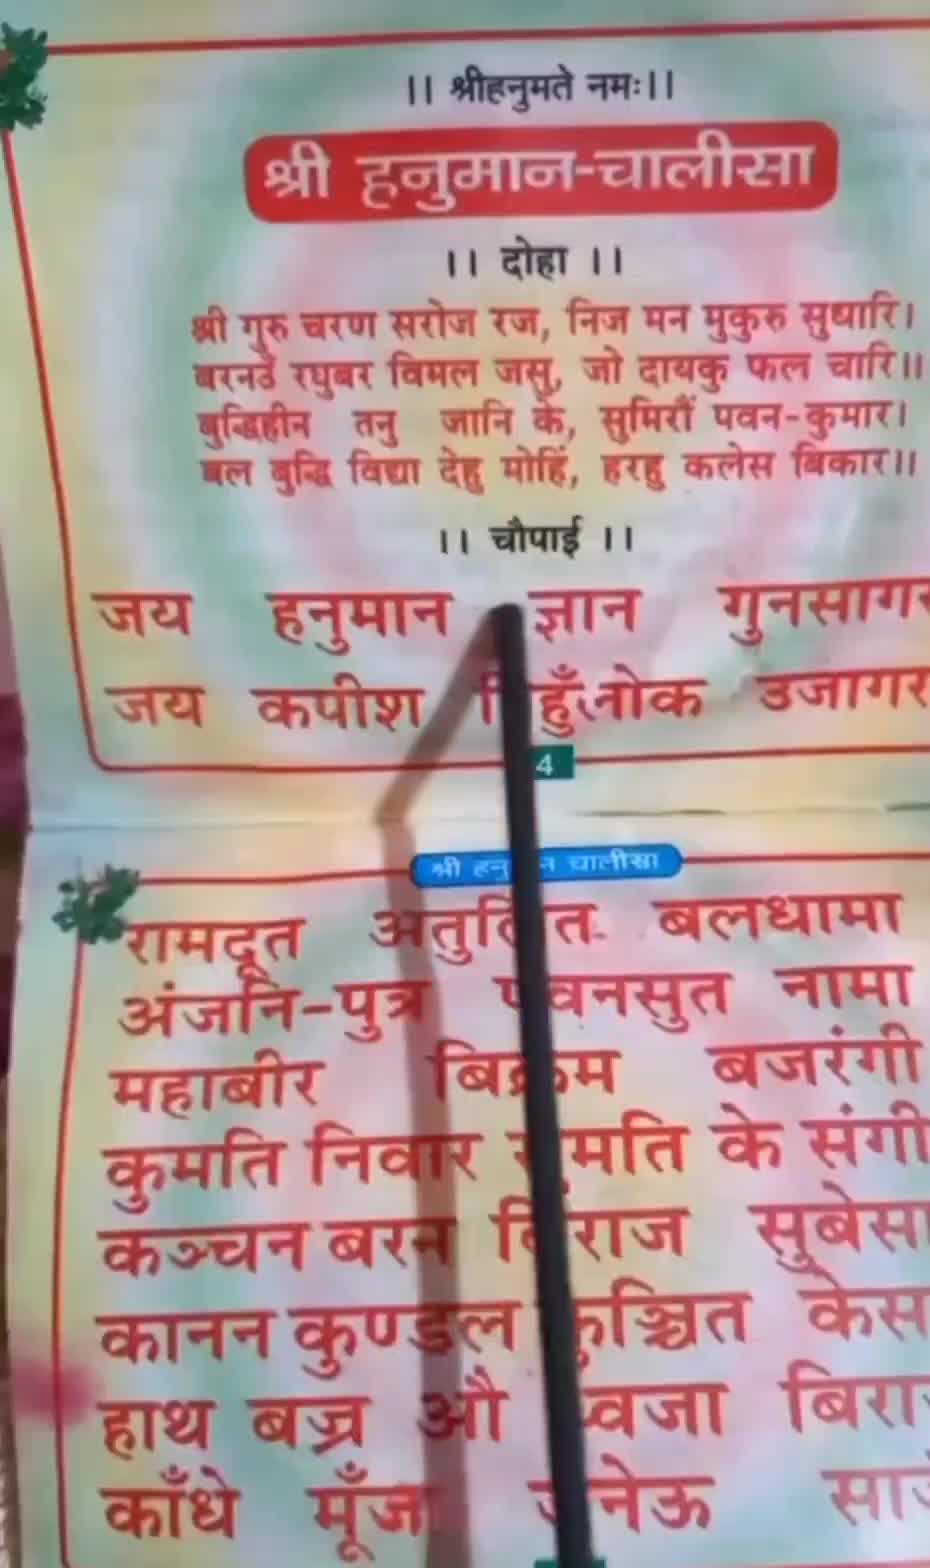 ।। श्रीहनुमते नमः।।
श्री हनुमान-चालीसा
।। दोहा ।।
श्री गुरु चरण सरोज रज, निज मन मुकुरु सुधारि।
बरनउँ रघुबर विमल जसु, जो दायकु फल चारि।।
बुद्धिहीन तनु जानि के, सुमिरौं पवन-कुमार।
बल बुद्धि विद्या देहु मोहिं, हरहु कलेस बिकार।।
।। चौपाई ।।
जय हनुमान ज्ञान गुनसागर
जय कपीश उजागर
4
श्री चालीसा
रामदूत अतुलित बलधामा
अंजनि-पुत्र पवनसुत नामा
महाबीर बिक्रम बजरंगी
कुमति निवार सुमति के संगी
कञ्चन बरन सुबेसा
कानन कुण्डल कुञ्चित
हाथ बज्र औ
काँधे